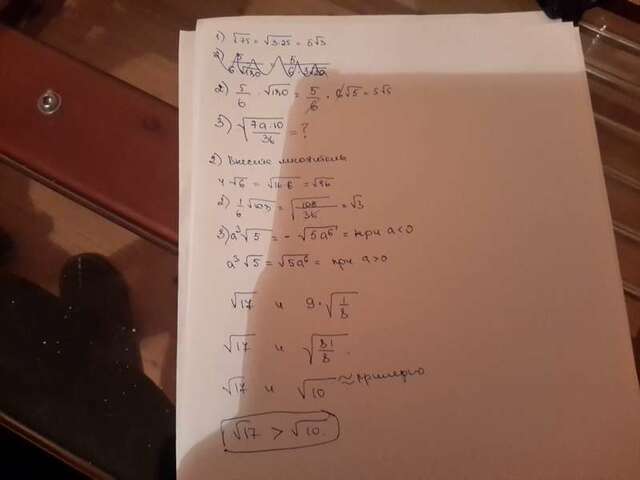 1) √75 = √3·25 = 5√3
2) 5/6 · √180 = 5/6 · 6√5 = 5√5
3) √(7a·10/36) = ?
2) Внести множитель
4√6 = √16·6 = √96
2) 1/6 √108 = √(108/36) = √3
3) a³√5 = -√5a⁶ = при a<0
a³√5 = √5a⁶ = при a>0
√17 и 9·√(1/8)
√17 и √(81/8)
√17 и √10 ≈ примерно
√17 > √10.